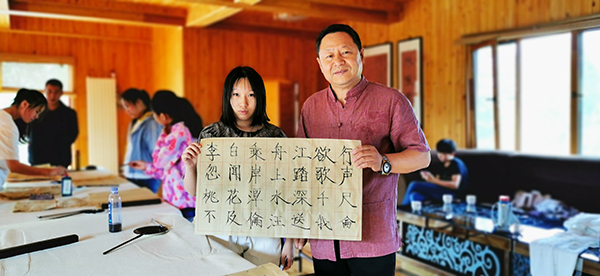 李白乘舟江欲行
忽闻岸上踏歌声
桃花潭水深千尺
不及倫汪送我侖